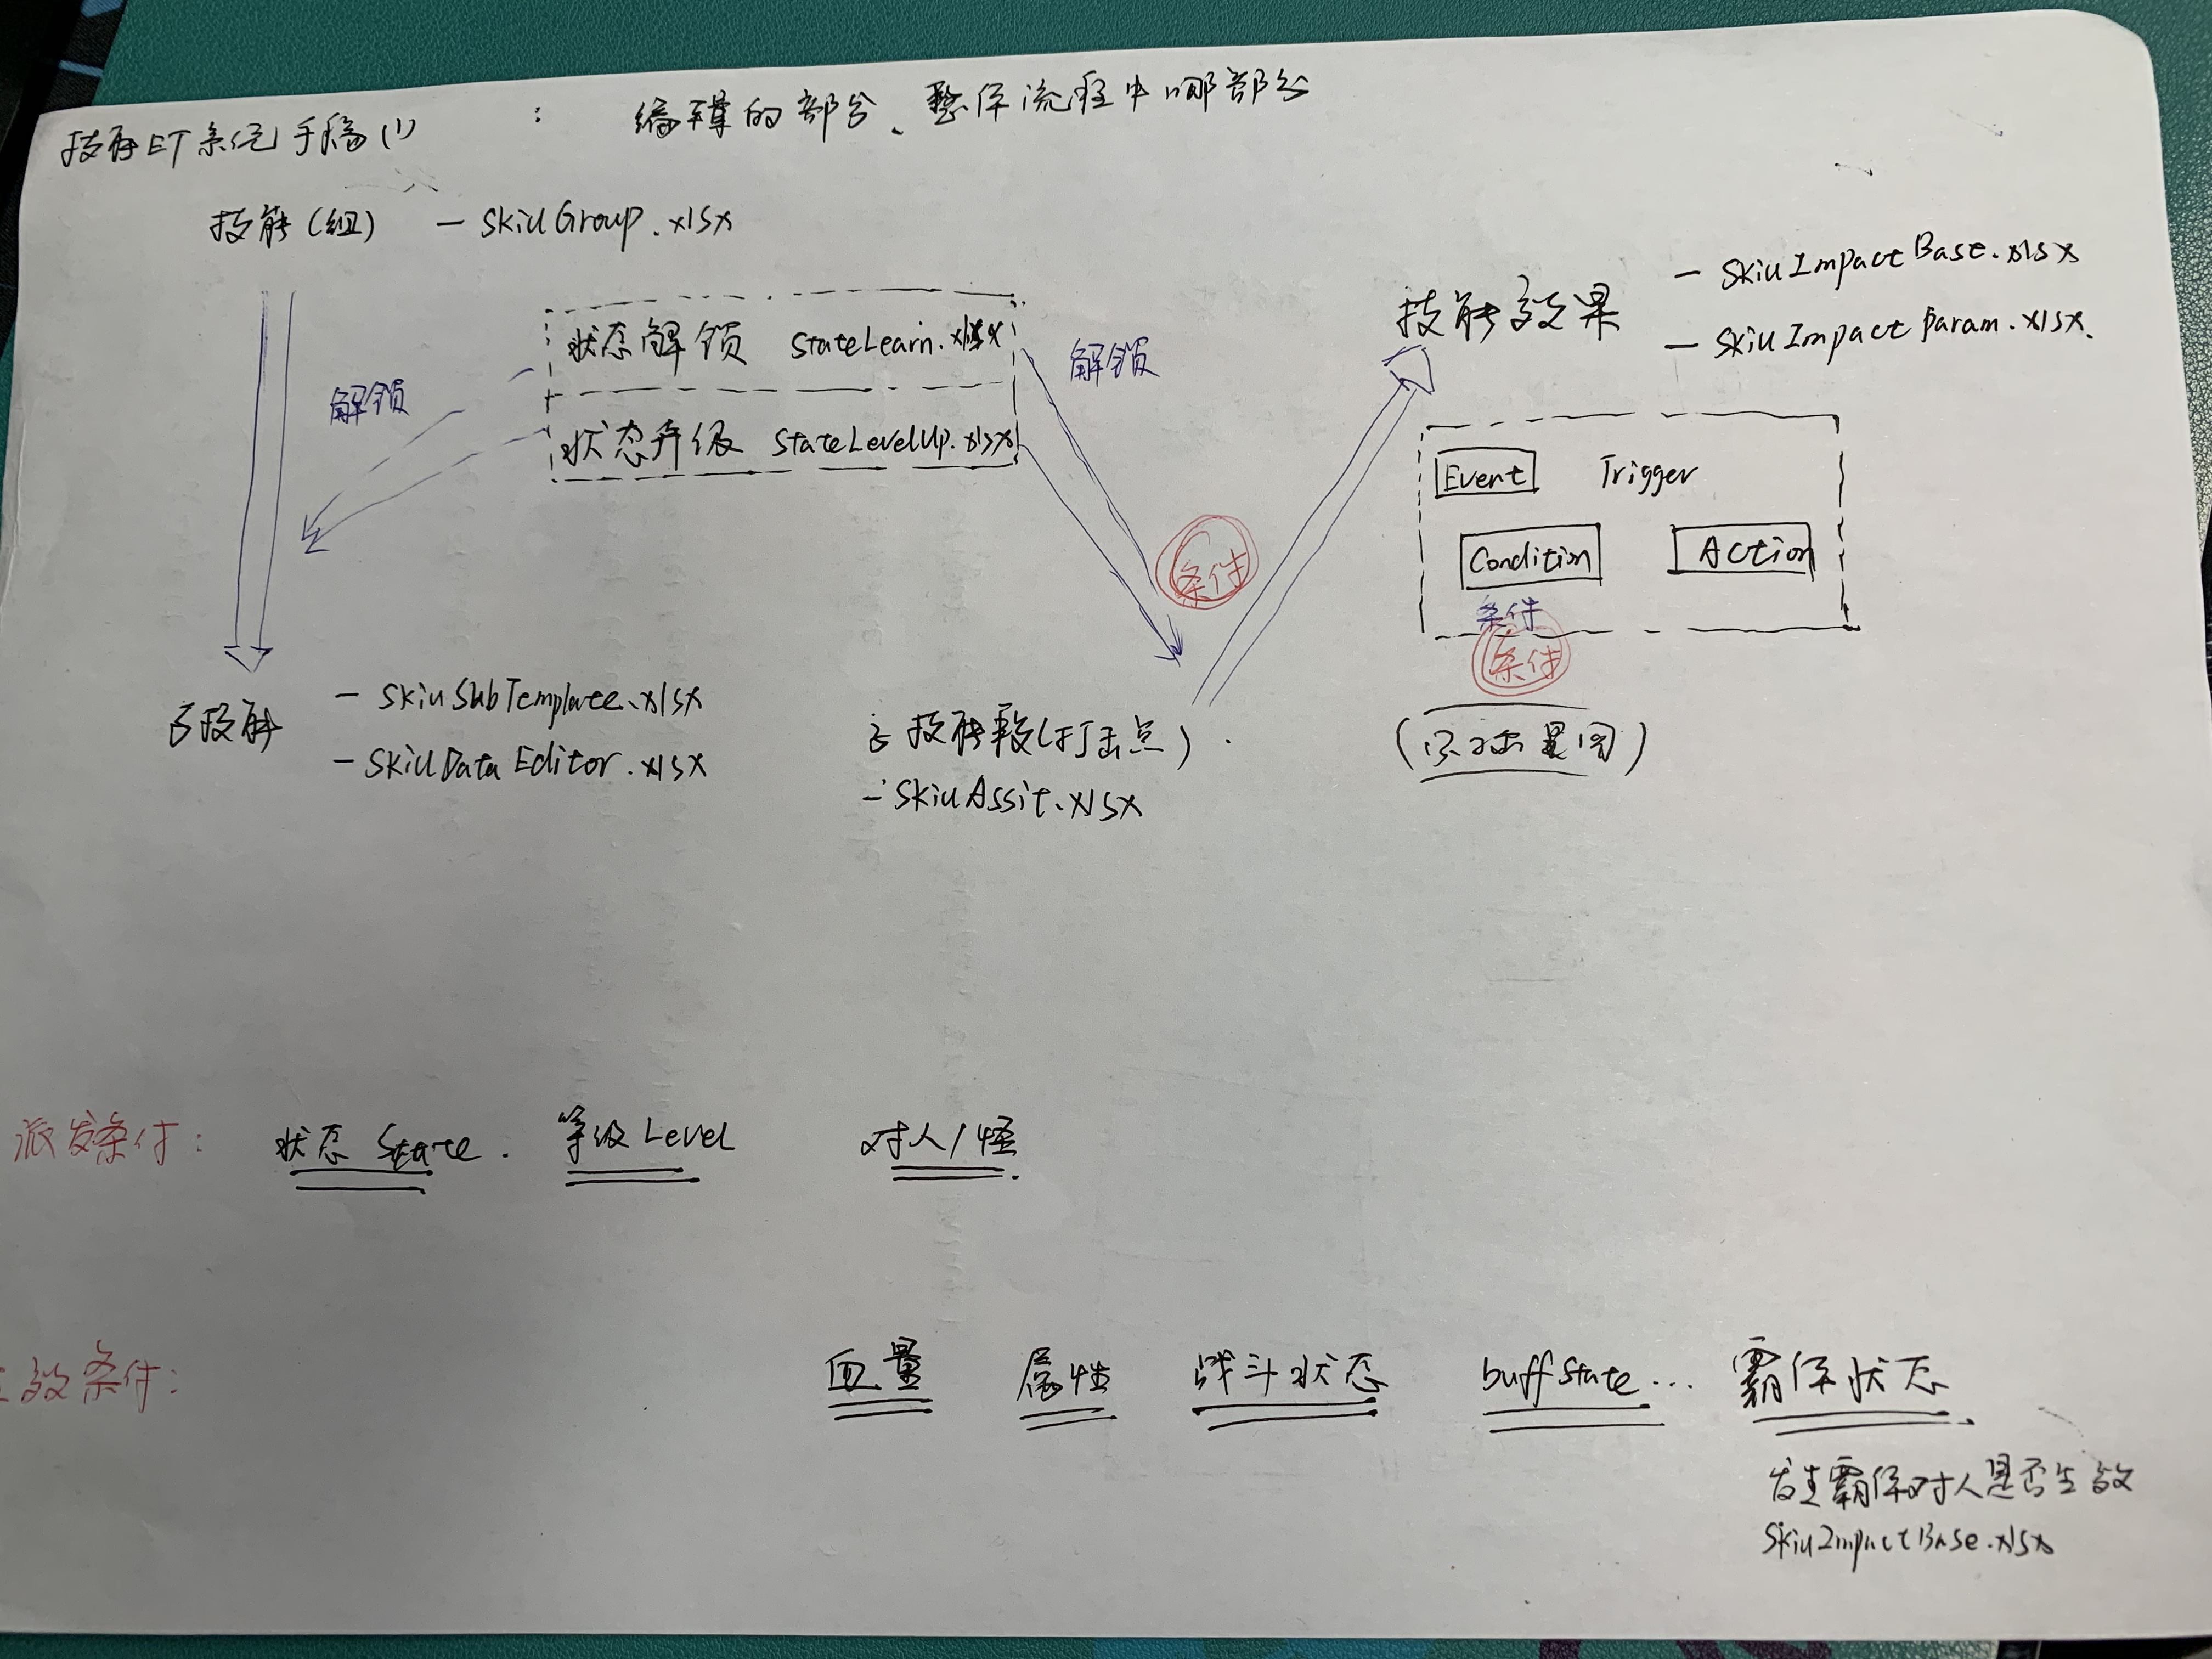 技能ET系统手稿(1) : 编辑的部分、整体流程中哪部分
技能(组) — SkillGroup.xlsx
状态解锁 StateLearn.xlsx
状态升级 StateLevelUp.xlsx
解锁
解锁
技能效果
— SkillImpactBase.xlsx
— SkillImpactParam.xlsx.
Event Trigger
Condition Action
条件
条件
条件
子技能
— SkillSubTemplate.xlsx
— SkillDataEditor.xlsx
子技能段(打击点).
— SkillAssit.xlsx
派发条件: 状态 State. 等级 Level 对人/怪.
效条件: 血量 属性 战斗状态 buffState... 霸体状态.
发生霸体对人是否生效
SkillImpactBase.xlsx